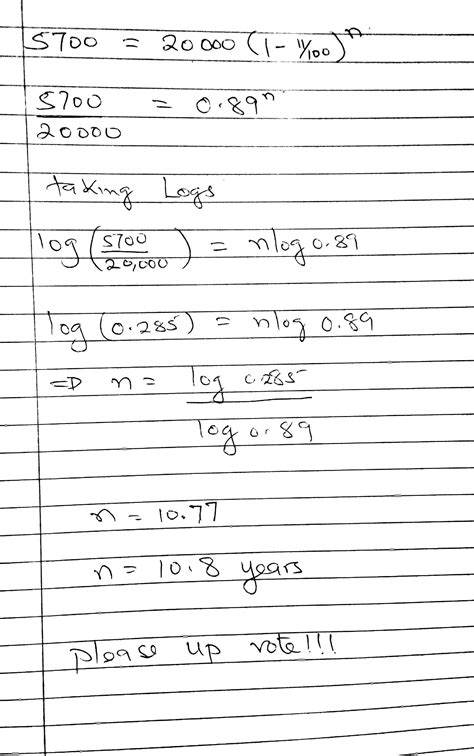 5700 = 20000 (1 - 11/100)^n
5700/20000 = 0.89^n
taking Logs
log (5700/20,000) = nlog 0.89
log (0.285) = nlog 0.89
=> n = log 0.285 / log 0.89
n = 10.77
n = 10.8 years
please up vote!!!